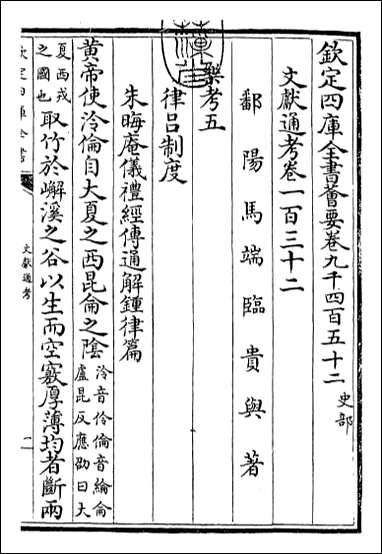 欽定四庫全書薈要卷九千四百五十二 史部
文獻通考卷一百三十二
鄱陽馬端臨貴與著
樂考五
律呂制度
朱晦庵儀禮經傳通解鍾律篇
黄帝使泠倫自大夏之西昆侖之陰泠音伶倫音綸侖
盧昆反應劭曰大
夏西戎
之國也取竹於嶰溪之谷以生而空竅厚薄均者斷兩
欽定四庫全書
文獻通考
一